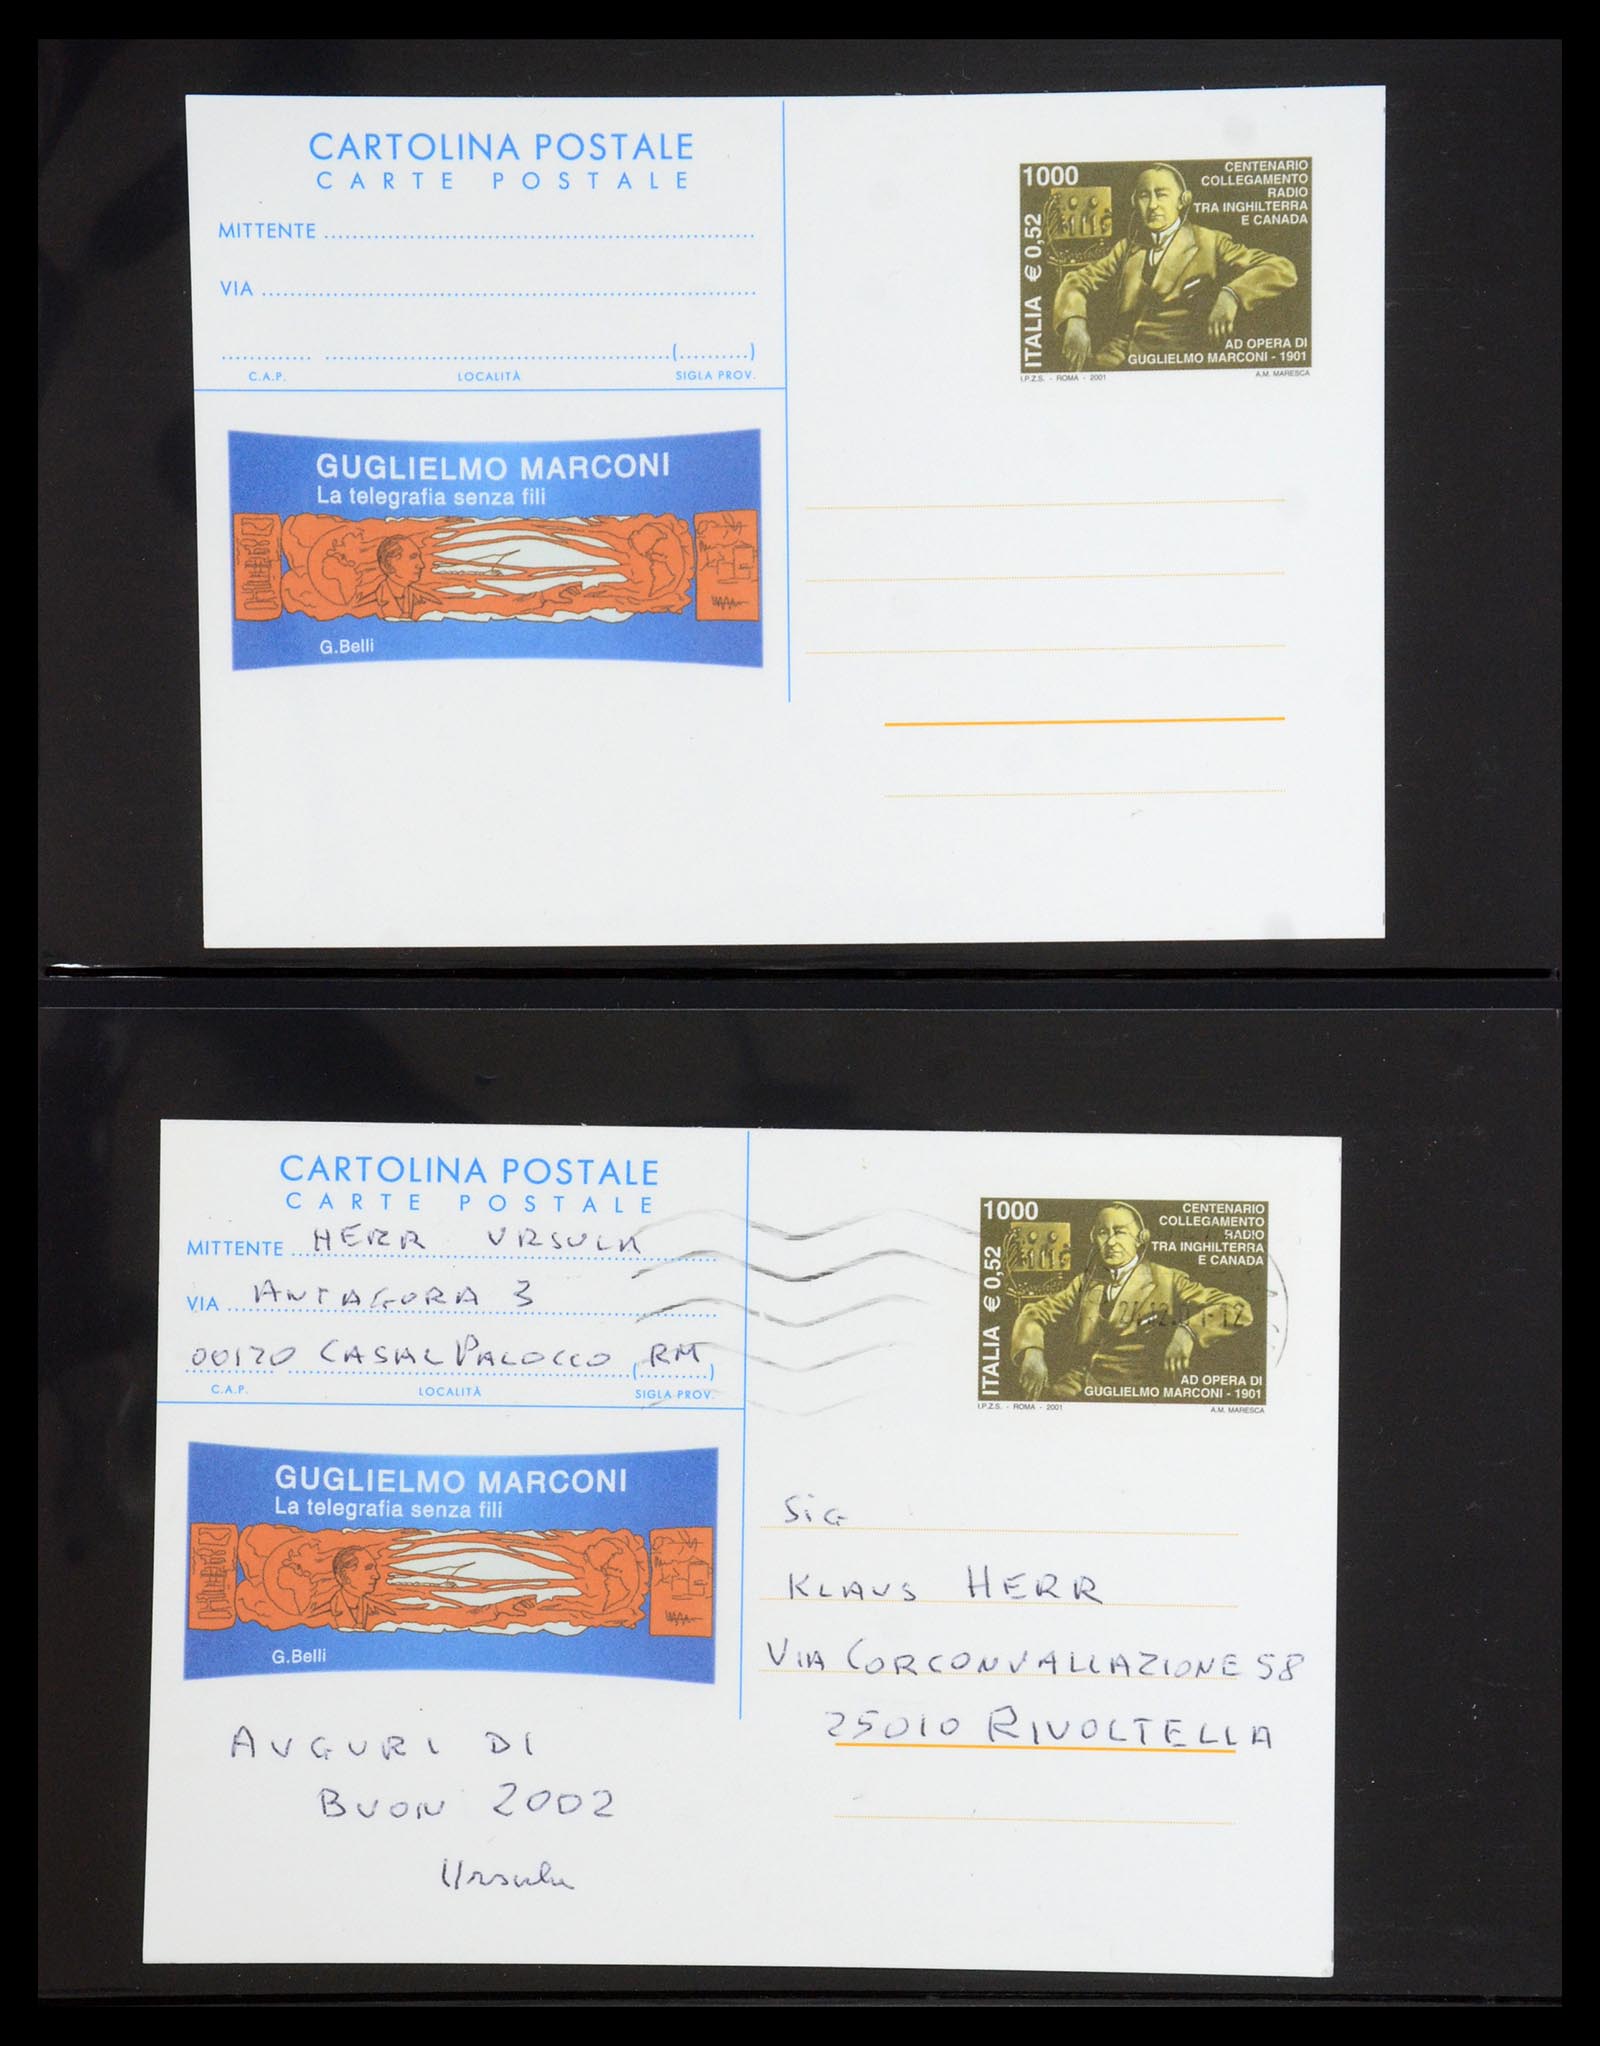 CARTOLINA POSTALE
CARTE POSTALE
MITTENTE
VIA
(..........)
C.A.P. LOCALITÀ SIGLA PROV.
GUGLIELMO MARCONI
La telegrafia senza fili
G.Belli
1000
ITALIA € 0,52
CENTENARIO
COLLEGAMENTO
RADIO
TRA INGHILTERRA
E CANADA
AD OPERA DI
GUGLIELMO MARCONI - 1901
I.P.Z.S. - ROMA - 2001 A.M. MARESCA
CARTOLINA POSTALE
CARTE POSTALE
MITTENTE HERR URSULA
VIA ANTAGORA 3
00120 CASAL PALOCCO (RM)
C.A.P. LOCALITÀ SIGLA PROV.
GUGLIELMO MARCONI
La telegrafia senza fili
G.Belli
AUGURI DI
BUON 2002
Ursula
1000
ITALIA € 0,52
CENTENARIO
COLLEGAMENTO
RADIO
TRA INGHILTERRA
E CANADA
AD OPERA DI
GUGLIELMO MARCONI - 1901
I.P.Z.S. - ROMA - 2001 A.M. MARESCA
SIG
KLAUS HERR
VIA CORCONVALLAZIONE 58
25010 RIVOLTELLA